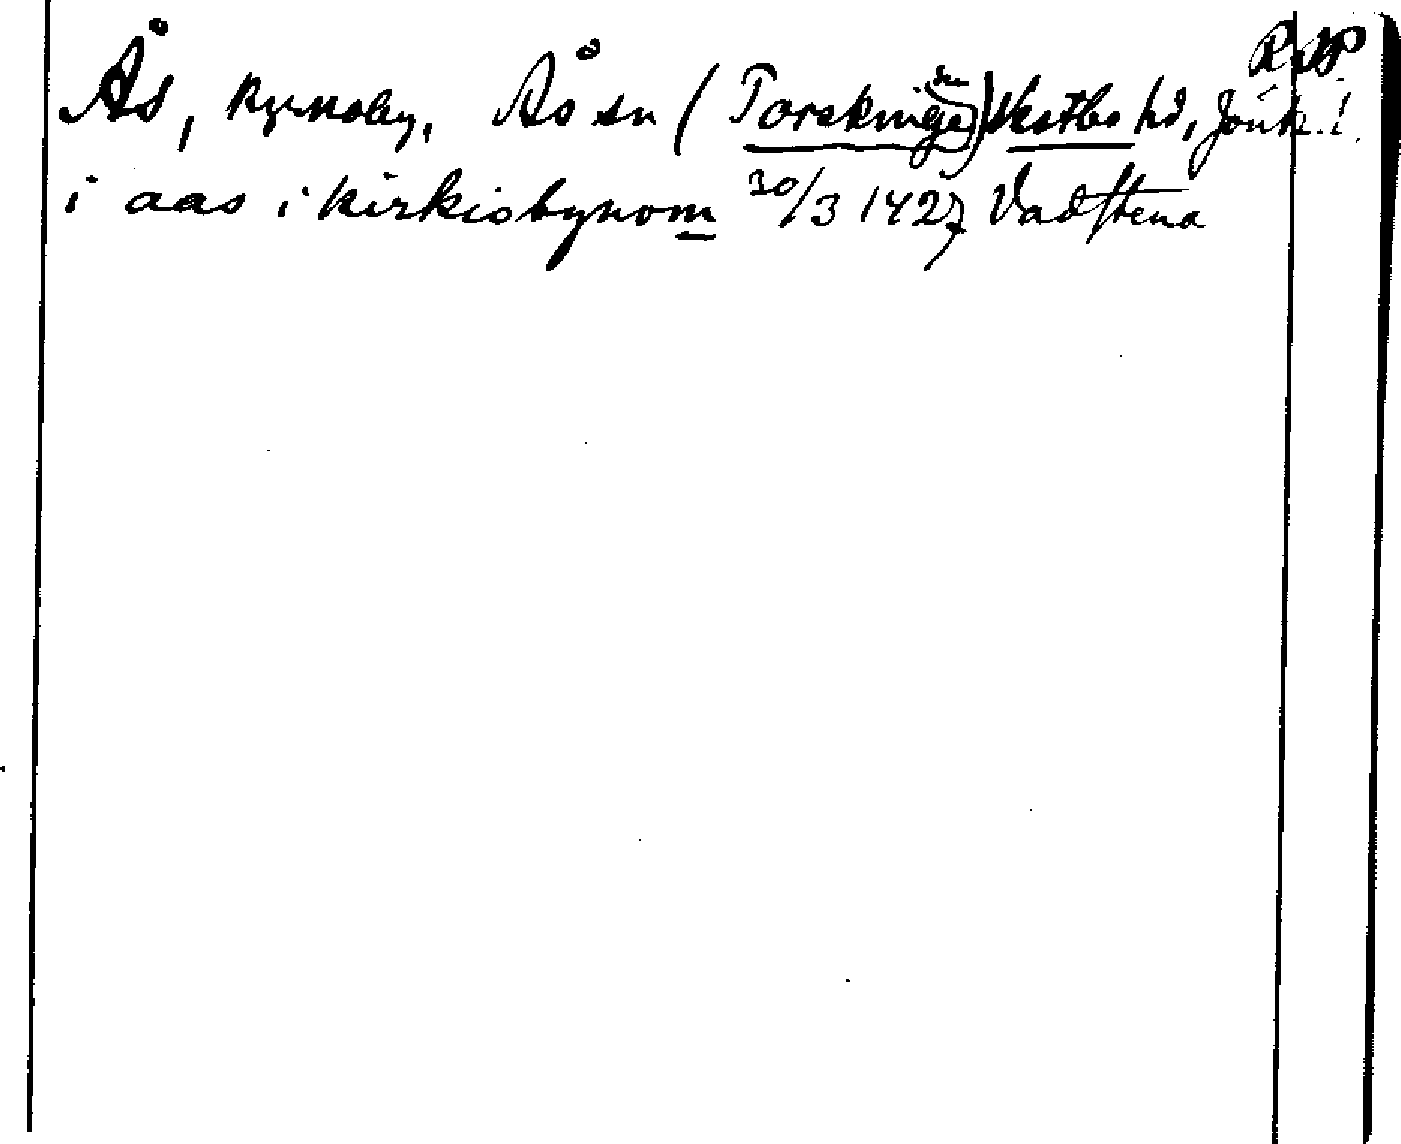 RAP
Ås, kyrkoby, Ås sn (Torskinge sn) Västbo hd, Jönk. l.
i aas i kirkiobynom 30/3 1427 Vadstena